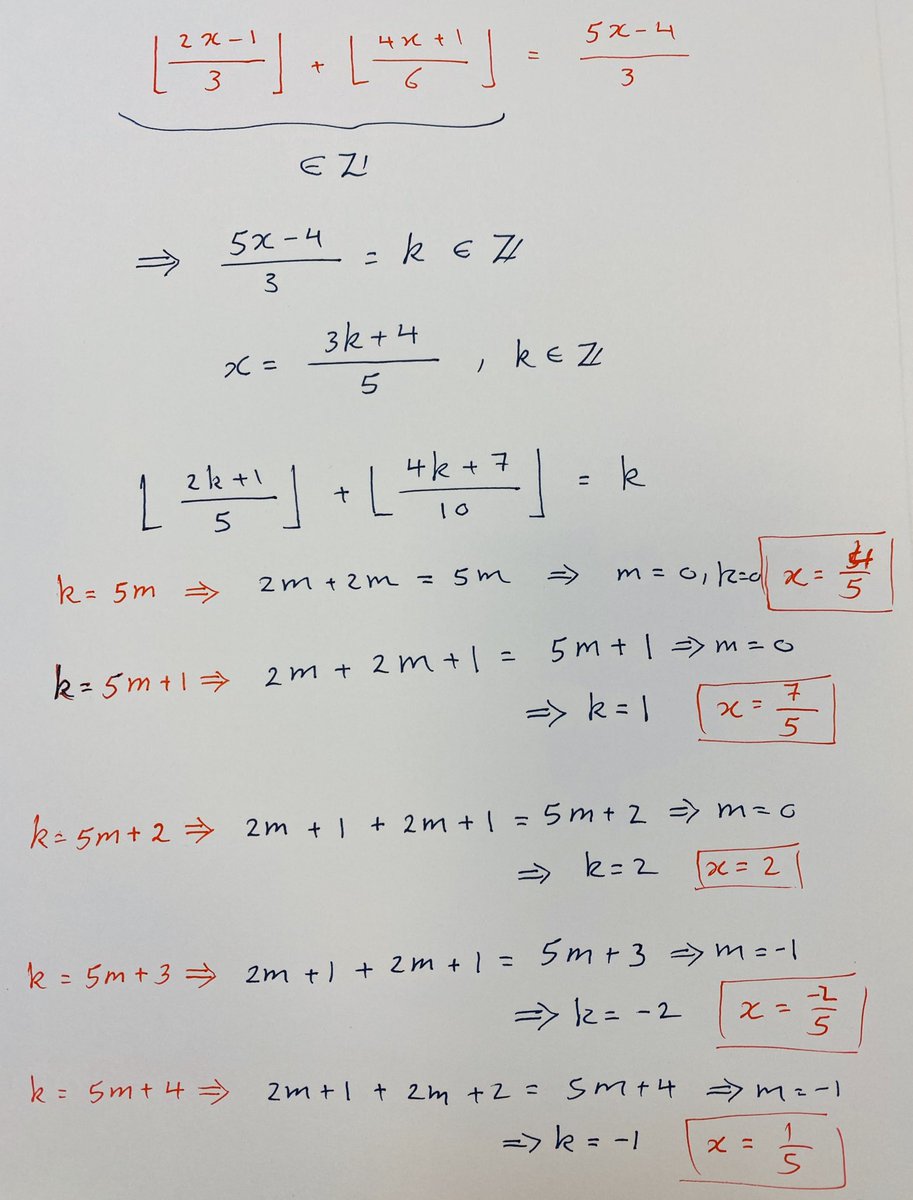 ⌊(2x-1)/3⌋ + ⌊(4x+1)/6⌋ = (5x-4)/3
∈ ℤ
⇒ (5x-4)/3 = k ∈ ℤ
x = (3k+4)/5 , k ∈ ℤ
⌊(2k+1)/5⌋ + ⌊(4k+7)/10⌋ = k
k = 5m ⇒ 2m + 2m = 5m ⇒ m = 0, k=0 x = 4/5
k = 5m+1 ⇒ 2m + 2m+1 = 5m+1 ⇒ m = 0
⇒ k = 1 x = 7/5
k = 5m+2 ⇒ 2m + 1 + 2m + 1 = 5m + 2 ⇒ m = 0
⇒ k = 2 x = 2
k = 5m+3 ⇒ 2m + 1 + 2m + 1 = 5m + 3 ⇒ m = -1
⇒ k = -2 x = -2/5
k = 5m+4 ⇒ 2m+1 + 2m +2 = 5m+4 ⇒ m = -1
⇒ k = -1 x = 1/5